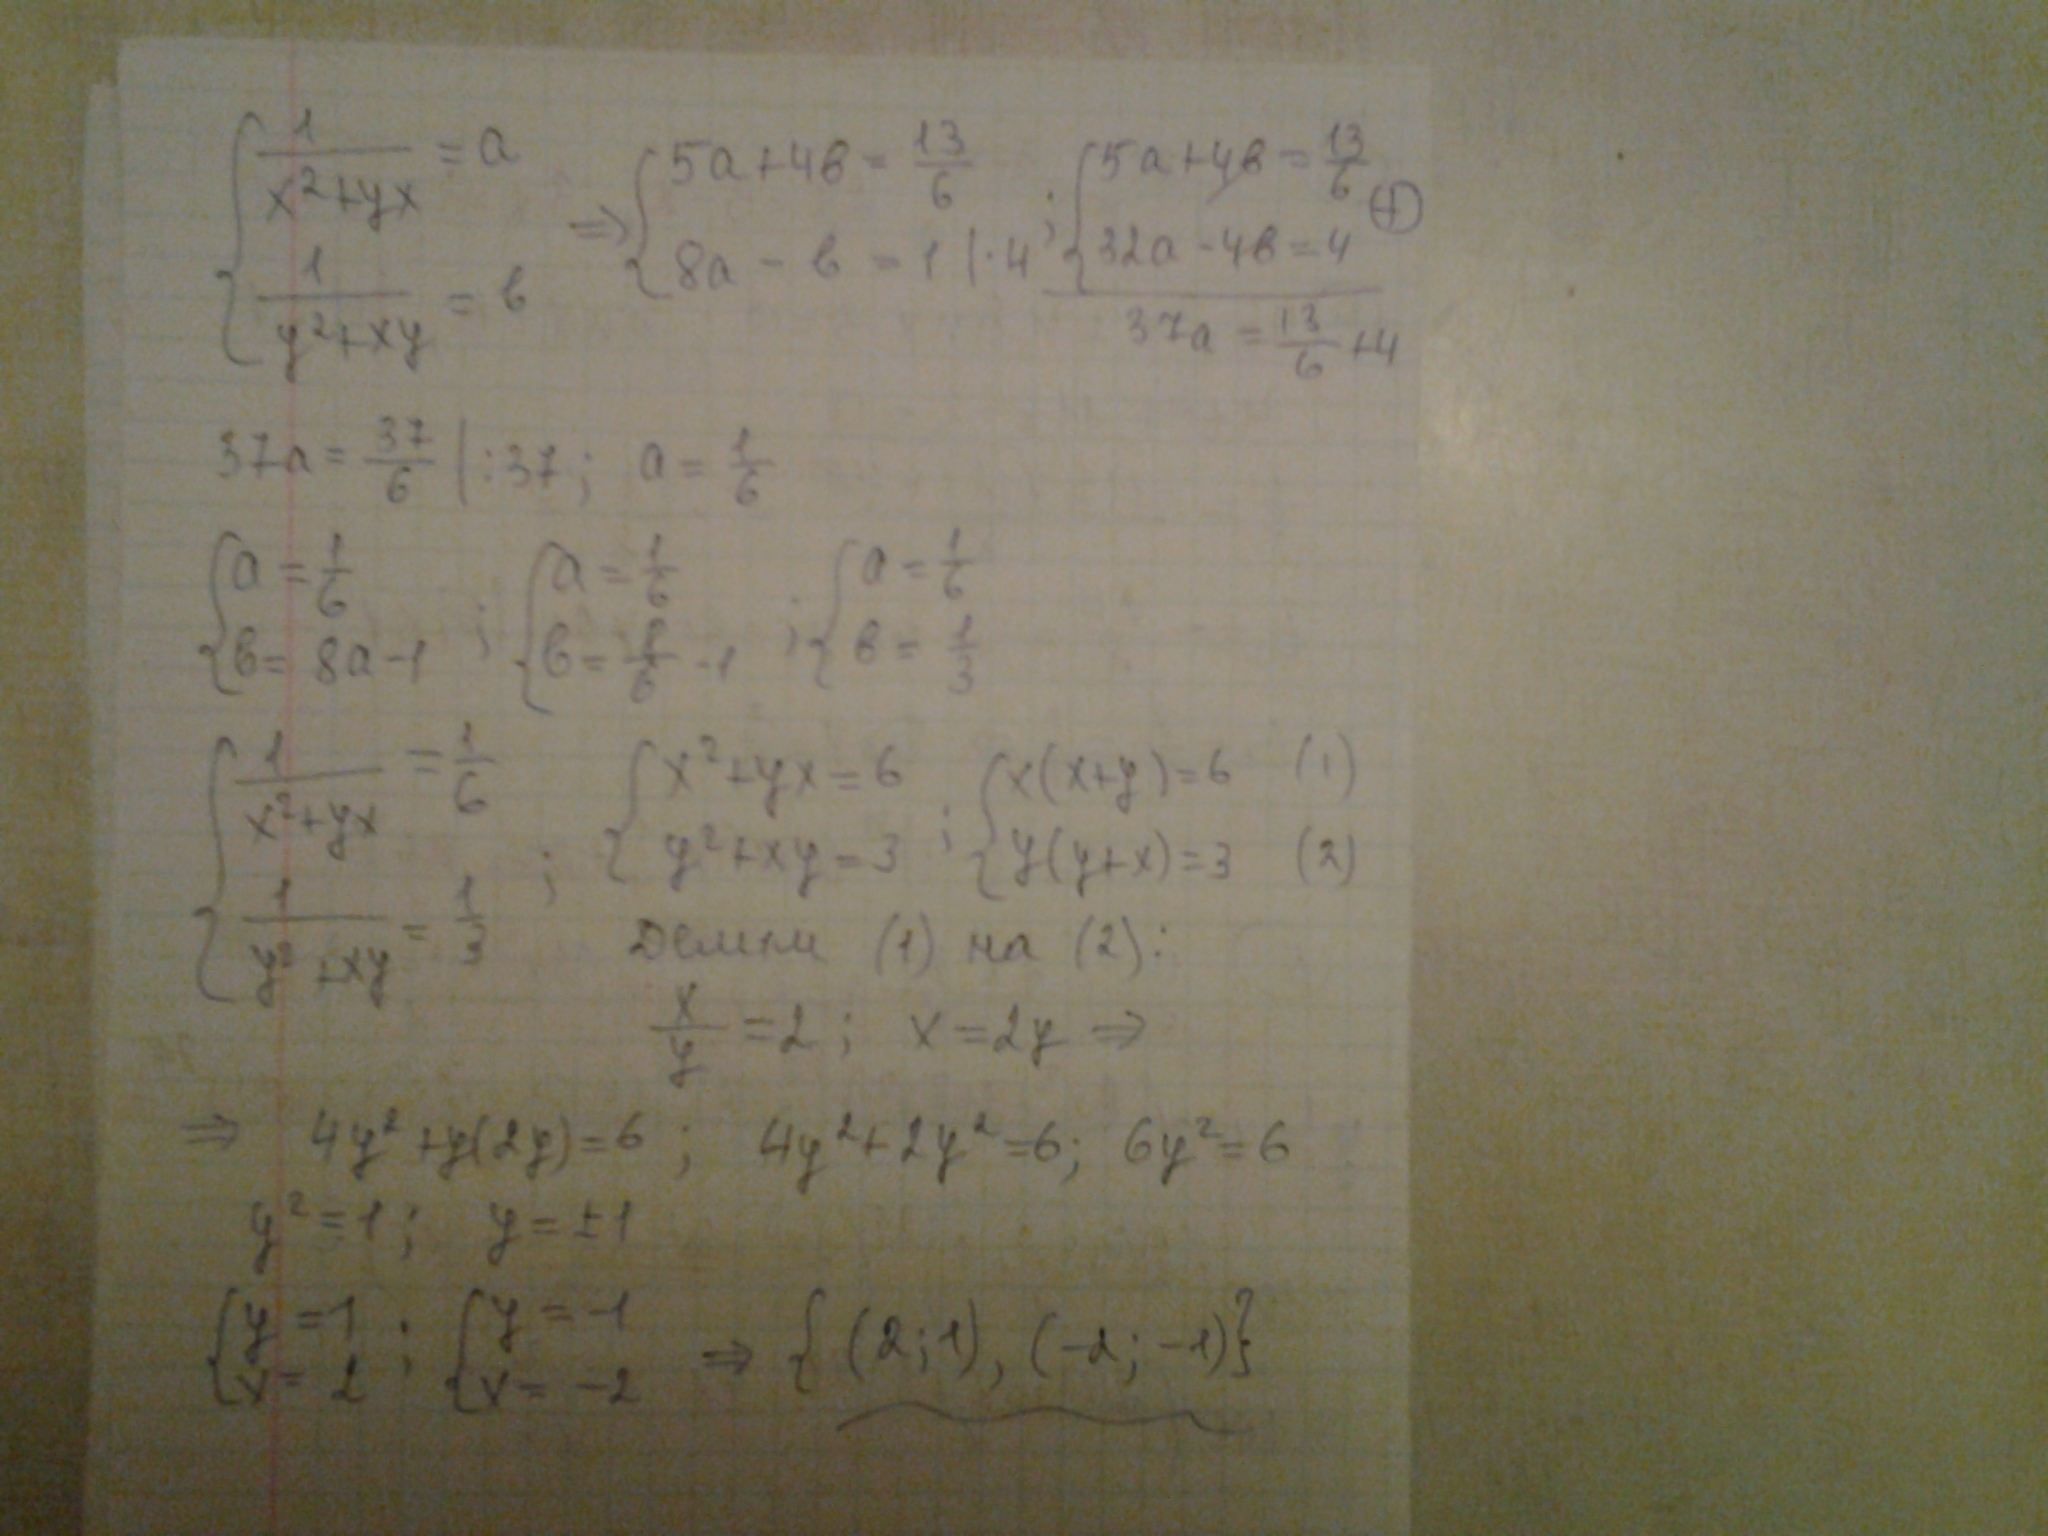 { 1/(x²+yx) = a ; 1/(y²+xy) = b ⇒ { 5a+4b = 13/6 ; 8a - b = 1 |·4 ; { 5a+4b = 13/6 ; 32a - 4b = 4 (+)
37a = 13/6 + 4
37a = 37/6 |:37 ; a = 1/6
{ a = 1/6 ; b = 8a - 1 ; { a = 1/6 ; b = 8/6 - 1 ; { a = 1/6 ; b = 1/3
{ 1/(x²+yx) = 1/6 ; 1/(y²+xy) = 1/3 ; { x²+yx = 6 ; y²+xy = 3 ; { x(x+y) = 6 (1) ; y(y+x) = 3 (2)
Делим (1) на (2):
x/y = 2 ; x = 2y ⇒
⇒ 4y² + y(2y) = 6 ; 4y² + 2y² = 6 ; 6y² = 6
y² = 1 ; y = ±1
{ y = 1 ; x = 2 ; { y = -1 ; x = -2 ⇒ {(2;1), (-2;-1)}